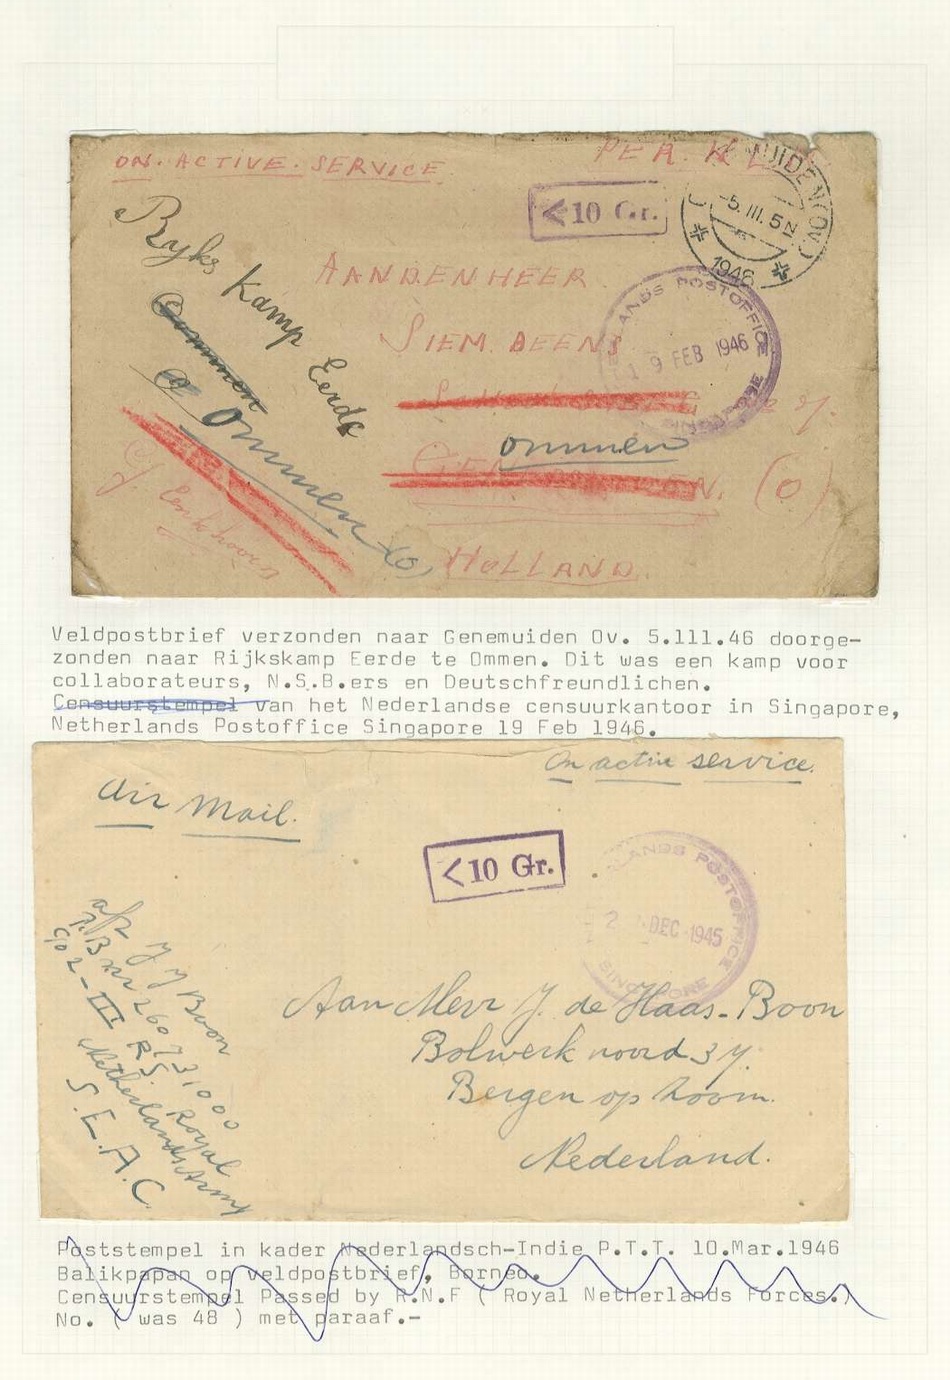 ON. ACTIVE. SERVICE
PER. K L
<10 Gr.
MUIDEN (OV.)
-5. III. 5N
1946
Ryks Kamp Eerde
Ommen
Ommen (O)
AAN DEN HEER
SIEM. BEENS
LANDS POSTOFFICE
19 FEB 1946
SINGAPORE
ommen
(O)
HOLLAND.
Veldpostbrief verzonden naar Genemuiden Ov. 5.111.46 doorge-
zonden naar Rijkskamp Eerde te Ommen. Dit was een kamp voor
collaborateurs, N.S.B.ers en Deutschfreundlichen.
Censuurstempel van het Nederlandse censuurkantoor in Singapore,
Netherlands Postoffice Singapore 19 Feb 1946.
On active service.
Air Mail.
<10 Gr.
LANDS POSTOFFICE
2 DEC 1945
SINGAPORE
afz J J Boon
260731000
902-III R.S.
Royal
Netherlands Army
S.E.A.C.
Aan Mevr J. de Haas-Boon
Bolwerk noord 37.
Bergen op Zoom.
Nederland.
Poststempel in kader Nederlandsch-Indie P.T.T. 10.Mar.1946
Balikpapan op veldpostbrief, Borneo.
Censuurstempel Passed by R.N.F ( Royal Netherlands Forces.)
No. ( was 48 ) met paraaf.-